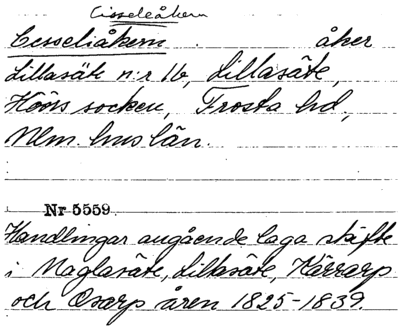 Cisseleåkern
Cesseliåkern åker
Lillasäte n:r 16, Lillasäte,
Hööns socken, Frosta hd,
Mlm. hus län.
Nr 5559.
Handlingar angående laga skifte
i Maglasäte, Lillasäte, Kärrarp
och Osarp åren 1825-1839.